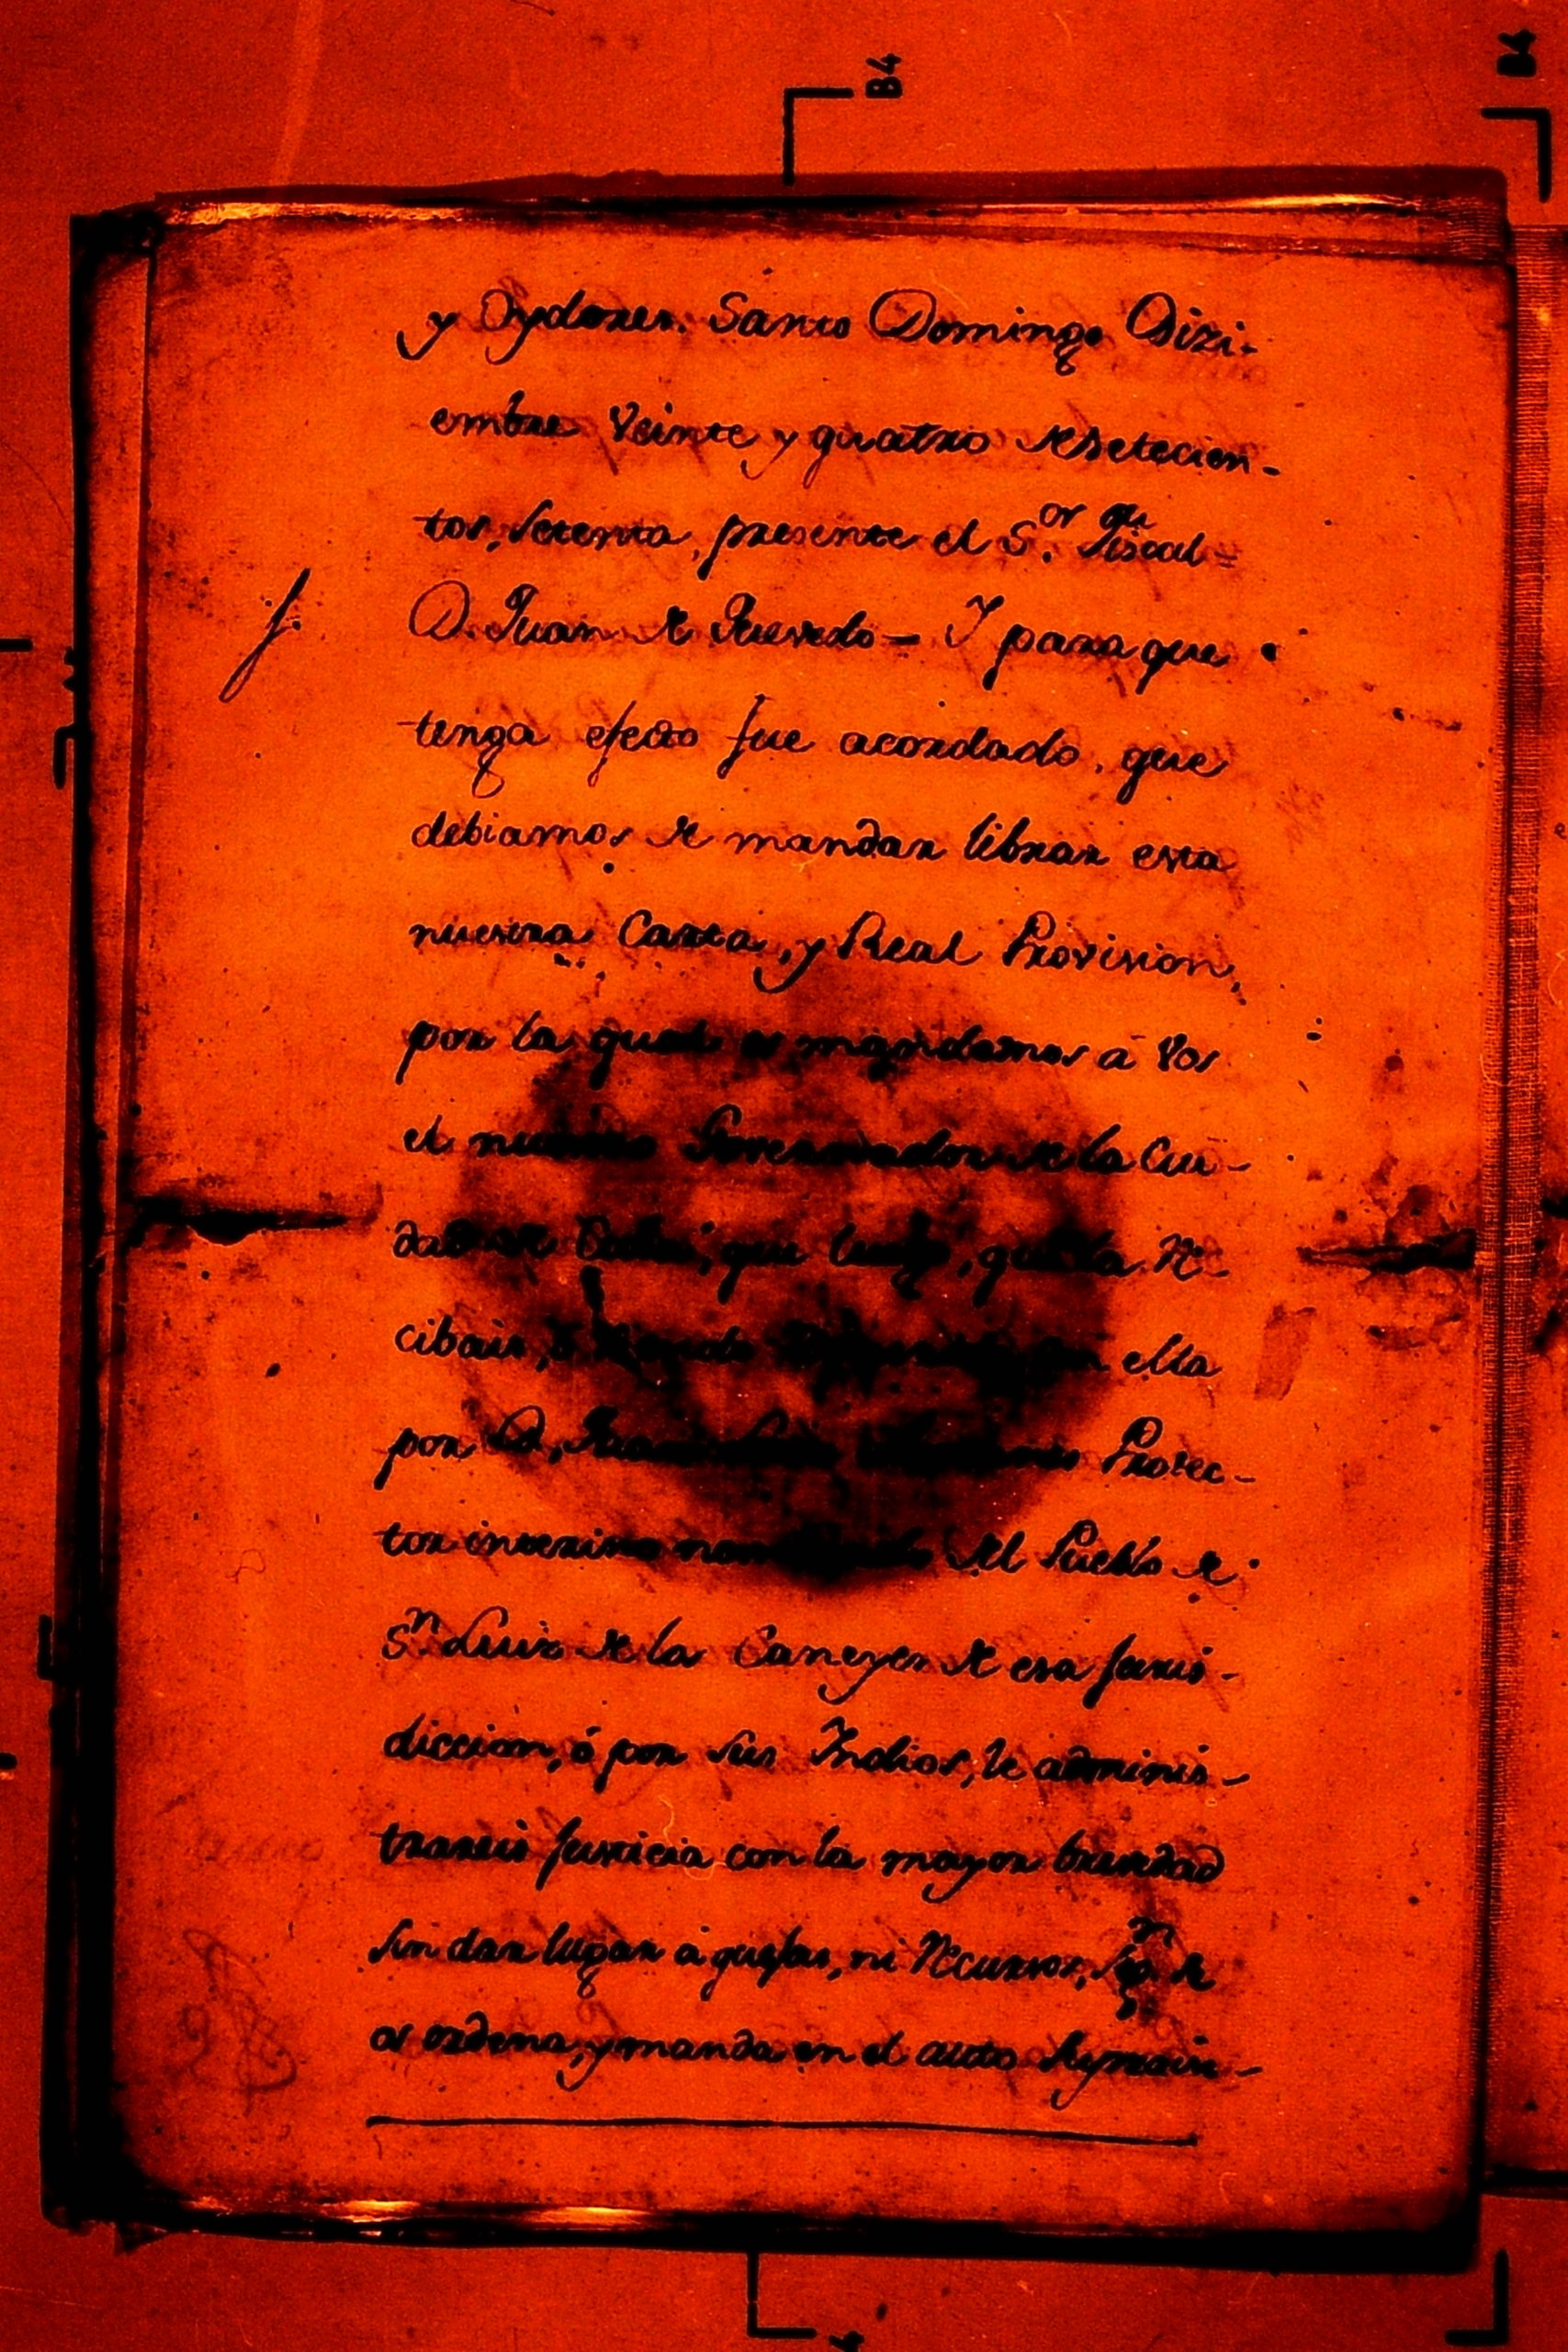 B4
B4
y Oydores. Santo Domingo Dizi-
embre Veinte y quatro de setecien-
tos, setenta, presente el S.or Fiscal =
D. Juan de Acevedo = Y para que
tenga efecto fue acordado, que
debiamos de mandar librar esta
nuestra Carta, y Real Provision,
por la qual os mandamos á Vos
el nuestro Governador de la Ciu-
dad de Cuba, que luego, que la Re-
cibais, ó ella
por D. Protec-
tor interino nombrado del Pueblo de
S.n Luis de la Caneyes de esa Juris-
diccion, ó por sus Indios, le adminis-
trareis Justicia con la mayor brevedad
sin dar lugar á quejas, ni Recursos, de
os ordena, y manda en el auto